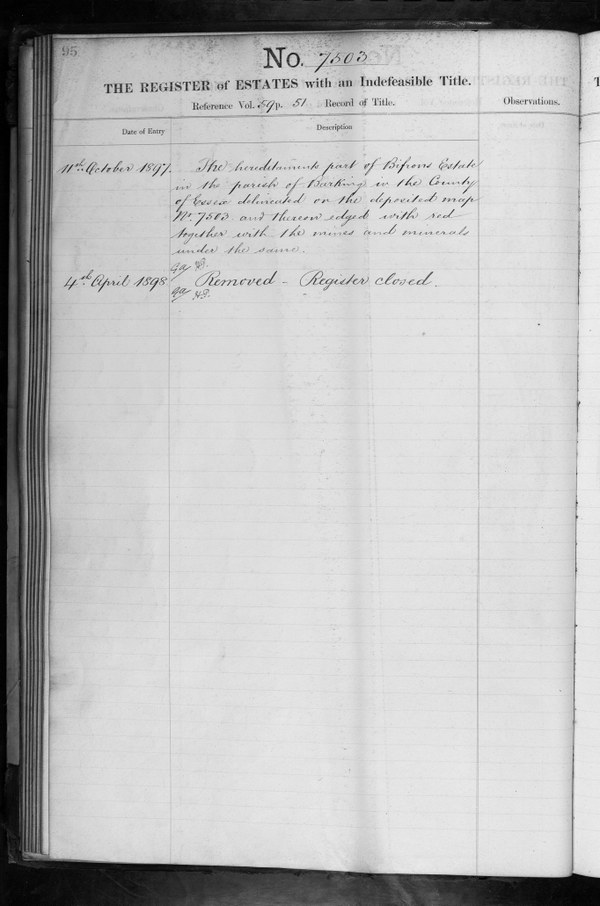 95
No. 7503
THE REGISTER of ESTATES with an Indefeasible Title.
Reference Vol. 59 p. 51 Record of Title.
Observations.
Date of Entry
Description
11th October 1897.
The hereditaments part of Bifrons Estate
in the parish of Barking in the County
of Essex delineated on the deposited map
No. 7503 and thereon edged with red
together with the mines and minerals
under the same.
4th April 1898
Removed - Register closed.